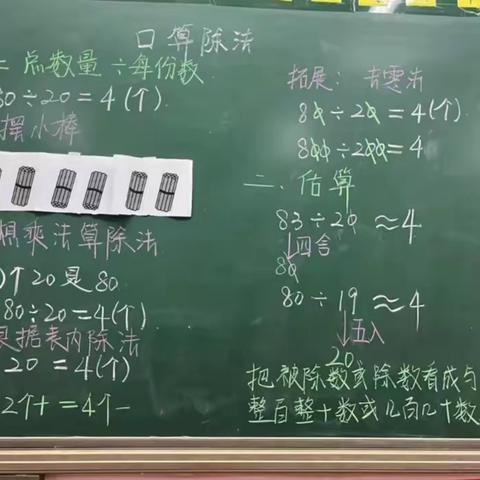 口算除法
总数量÷每份数
80÷20=4(个)
摆小棒
想乘法算除法
)个20是80
80÷20=4(个)
根据表内除法
20=4(个)
2个十=4个一
拓展：去零法
80÷20=4(个)
800÷200=4
二、估算
83÷20≈4
↓四舍
80
80÷19≈4
↓五入
20
把被除数或除数看成与
整百整十数或几百几十数